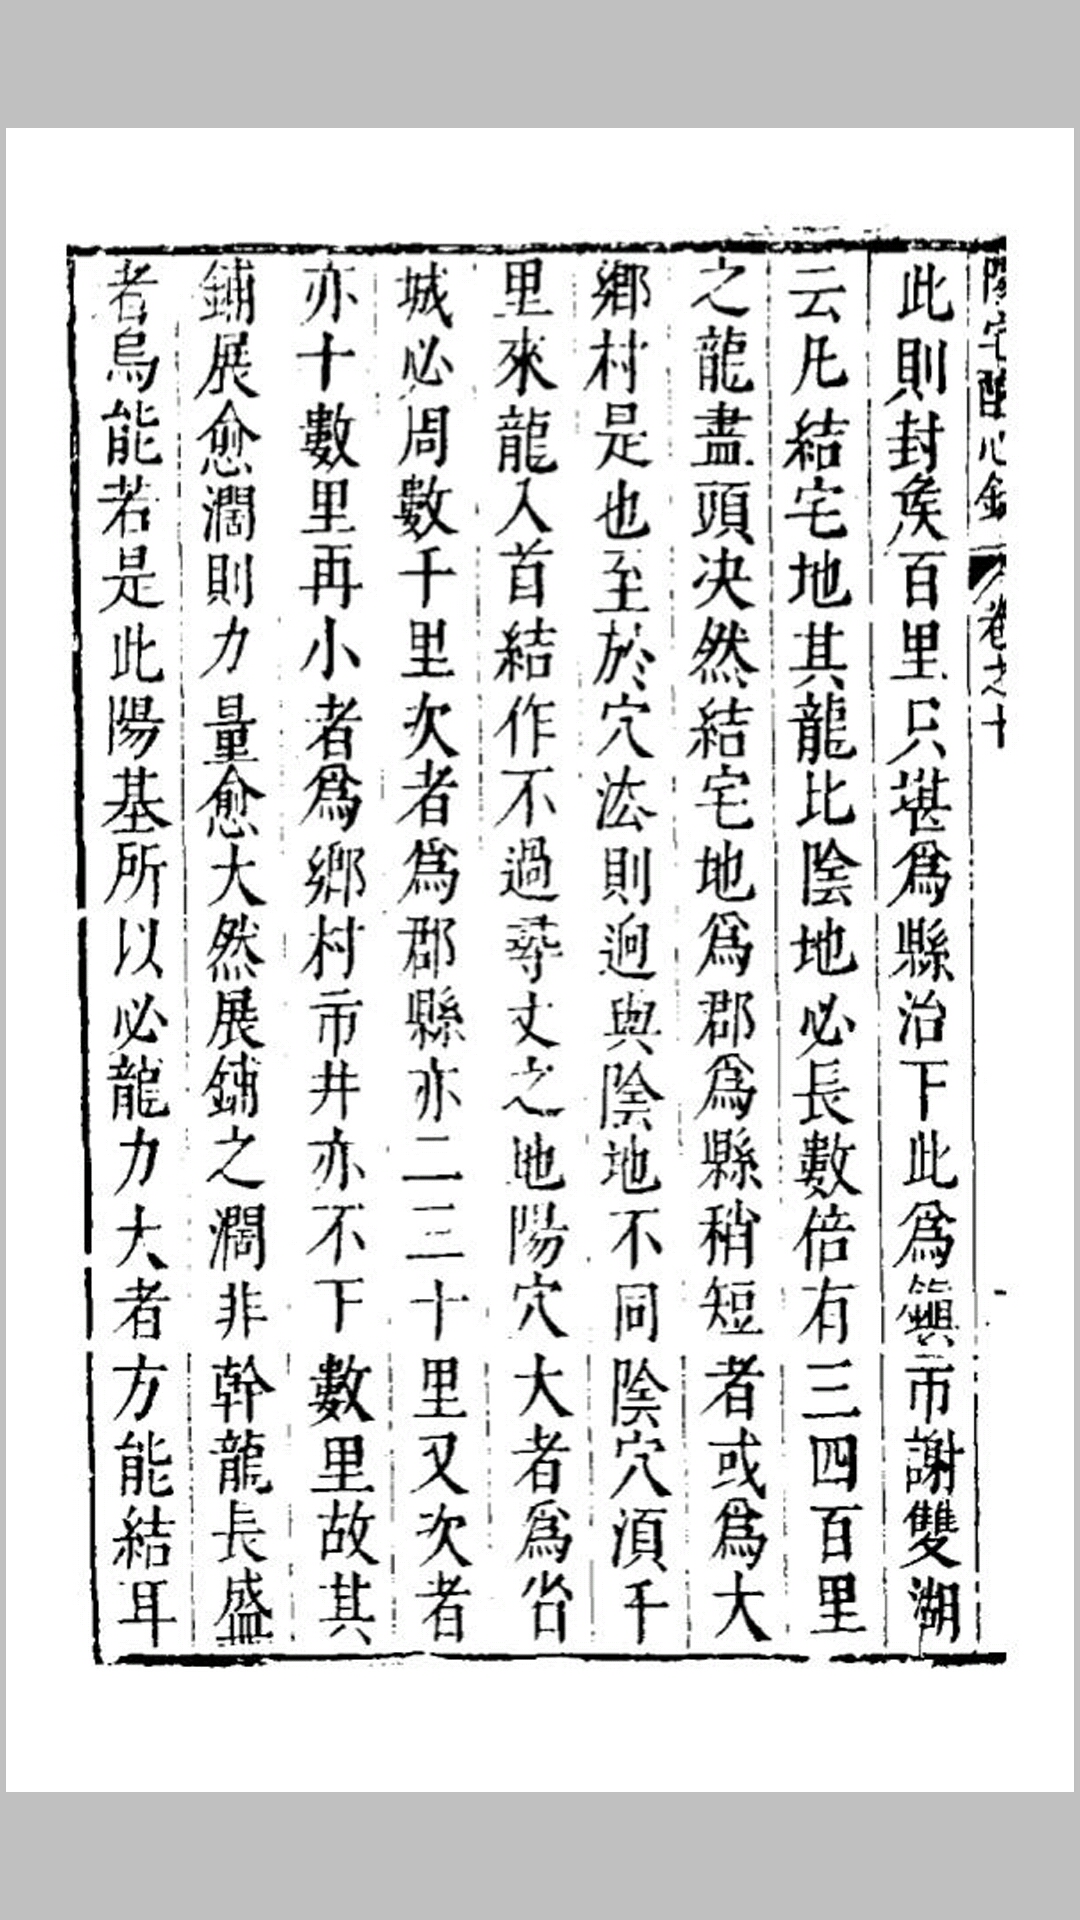 陽宅醒心錄 卷之十
此則封矦百里只堪爲縣治下此爲鎭市謝雙湖
云凡結宅地其龍比陰地必長數倍有三四百里
之龍盡頭决然結宅地爲郡爲縣稍短者或爲大
鄉村是也至於穴法則迥與陰地不同陰穴須千
里來龍入首結作不過尋丈之地陽穴大者爲省
城必周數千里次者爲郡縣亦二三十里又次者
亦十數里再小者爲鄉村市井亦不下數里故其
鋪展愈濶則力量愈大然展鋪之濶非幹龍長盛
者烏能若是此陽基所以必龍力大者方能結耳